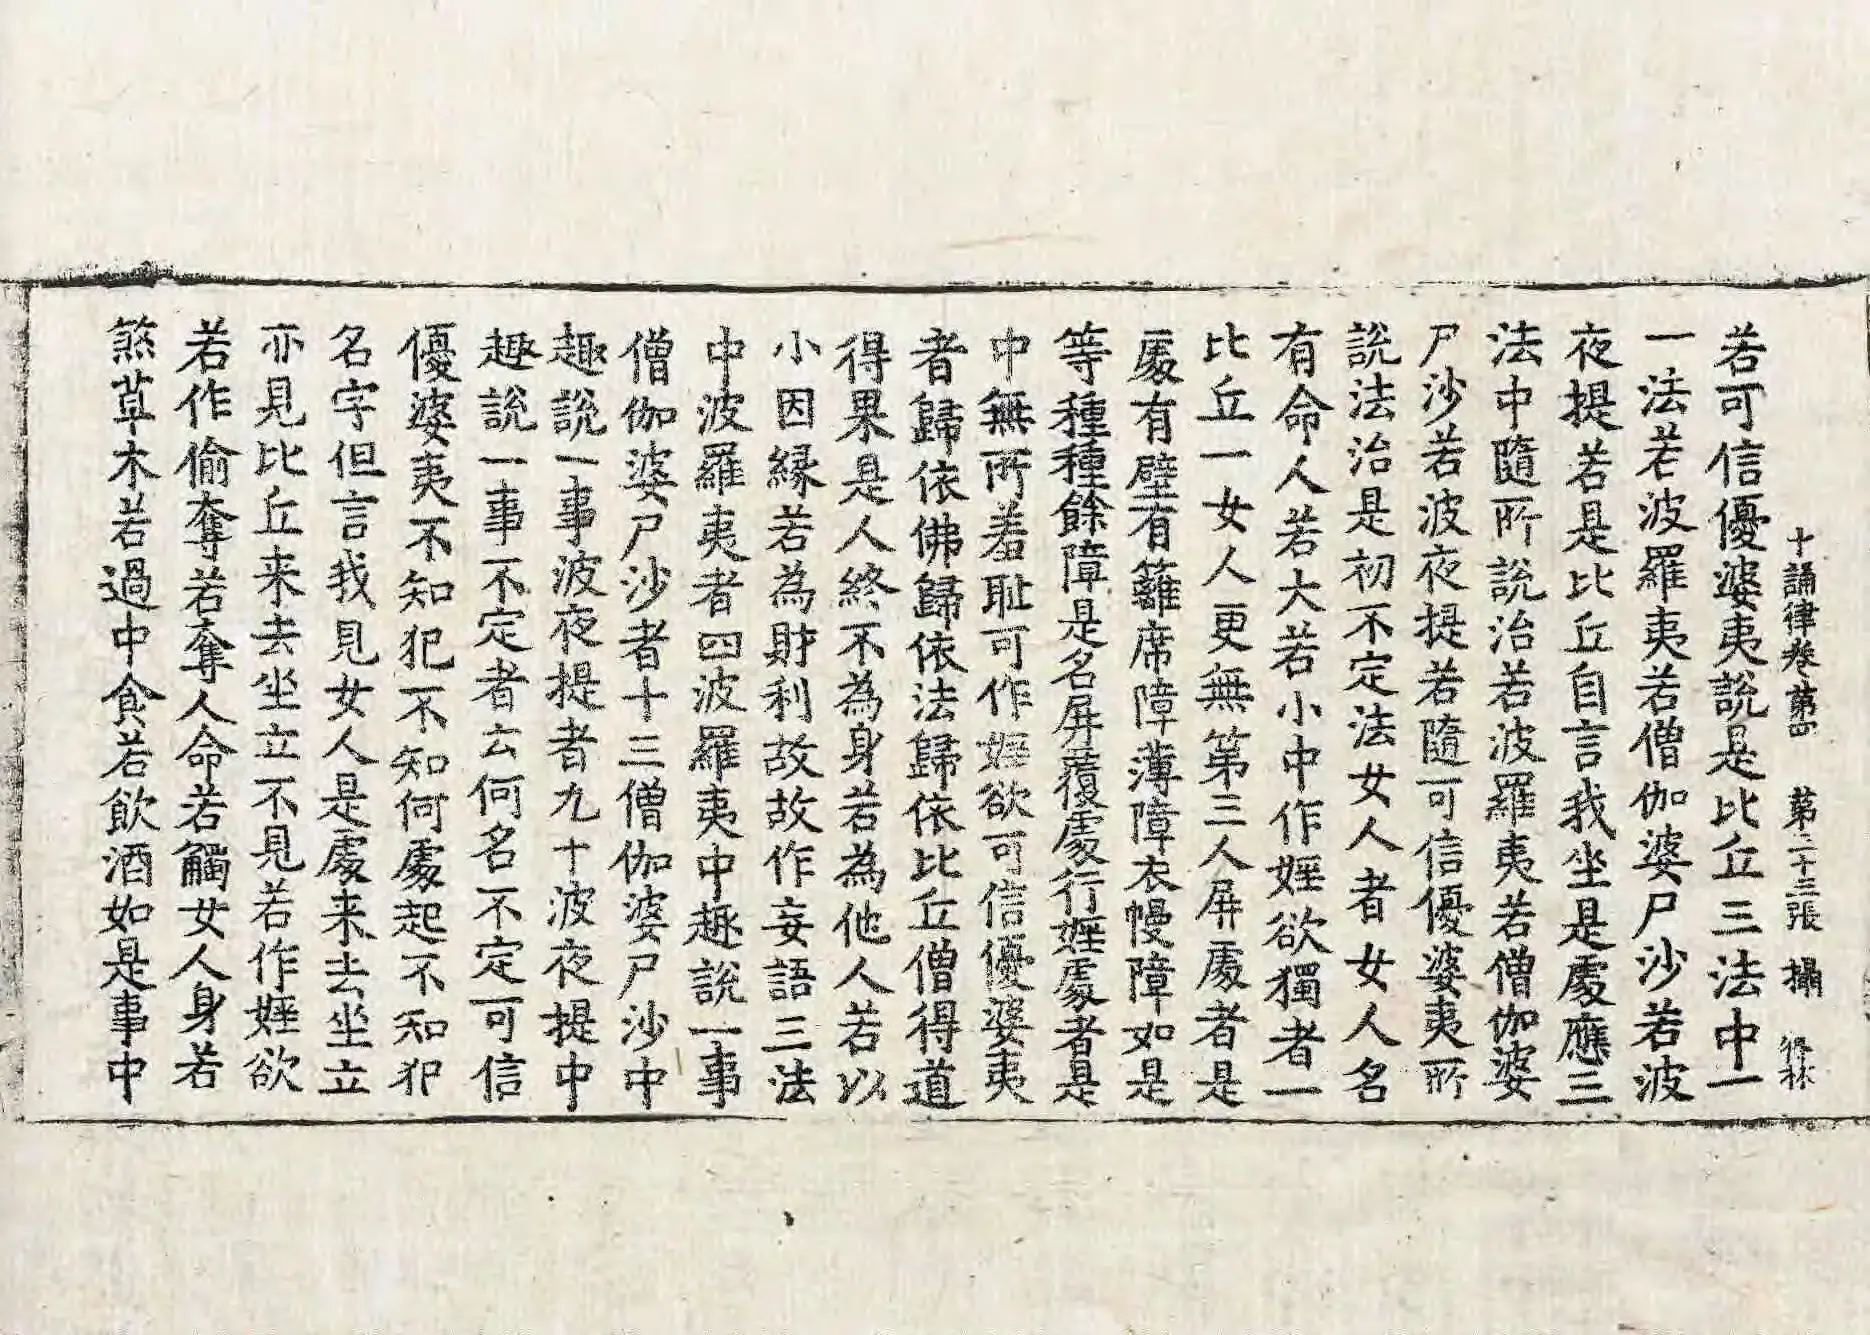 十誦律卷第四 第二十三張 攝
若可信優婆夷說是比丘三法中一
一法若波羅夷若僧伽婆尸沙若波
夜提若是比丘自言我坐是處應三
法中隨所說治若波羅夷若僧伽婆
尸沙若波夜提若隨可信優婆夷所
說法治是初不定法女人者女人名
有命人若大若小中作婬欲獨者一
比丘一女人更無第三人屏處者是
處有壁有籬席障薄障衣幔障如是
等種種餘障是名屏覆處行婬處者是
中無所羞恥可作婬欲可信優婆夷
者歸依佛歸依法歸依比丘僧得道
得果是人終不為身若為他人若以
小因緣若為財利故故作妄語三法
中波羅夷者四波羅夷中趣說一事
僧伽婆尸沙者十三僧伽婆尸沙中
趣說一事波夜提者九十波夜提中
趣說一事不定者云何名不定可信
優婆夷不知犯不知何處起不知犯
名字但言我見女人是處来去坐立
亦見比丘来去坐立不見若作婬欲
若作偷奪若奪人命若觸女人身若
煞草木若過中食若飲酒如是事中